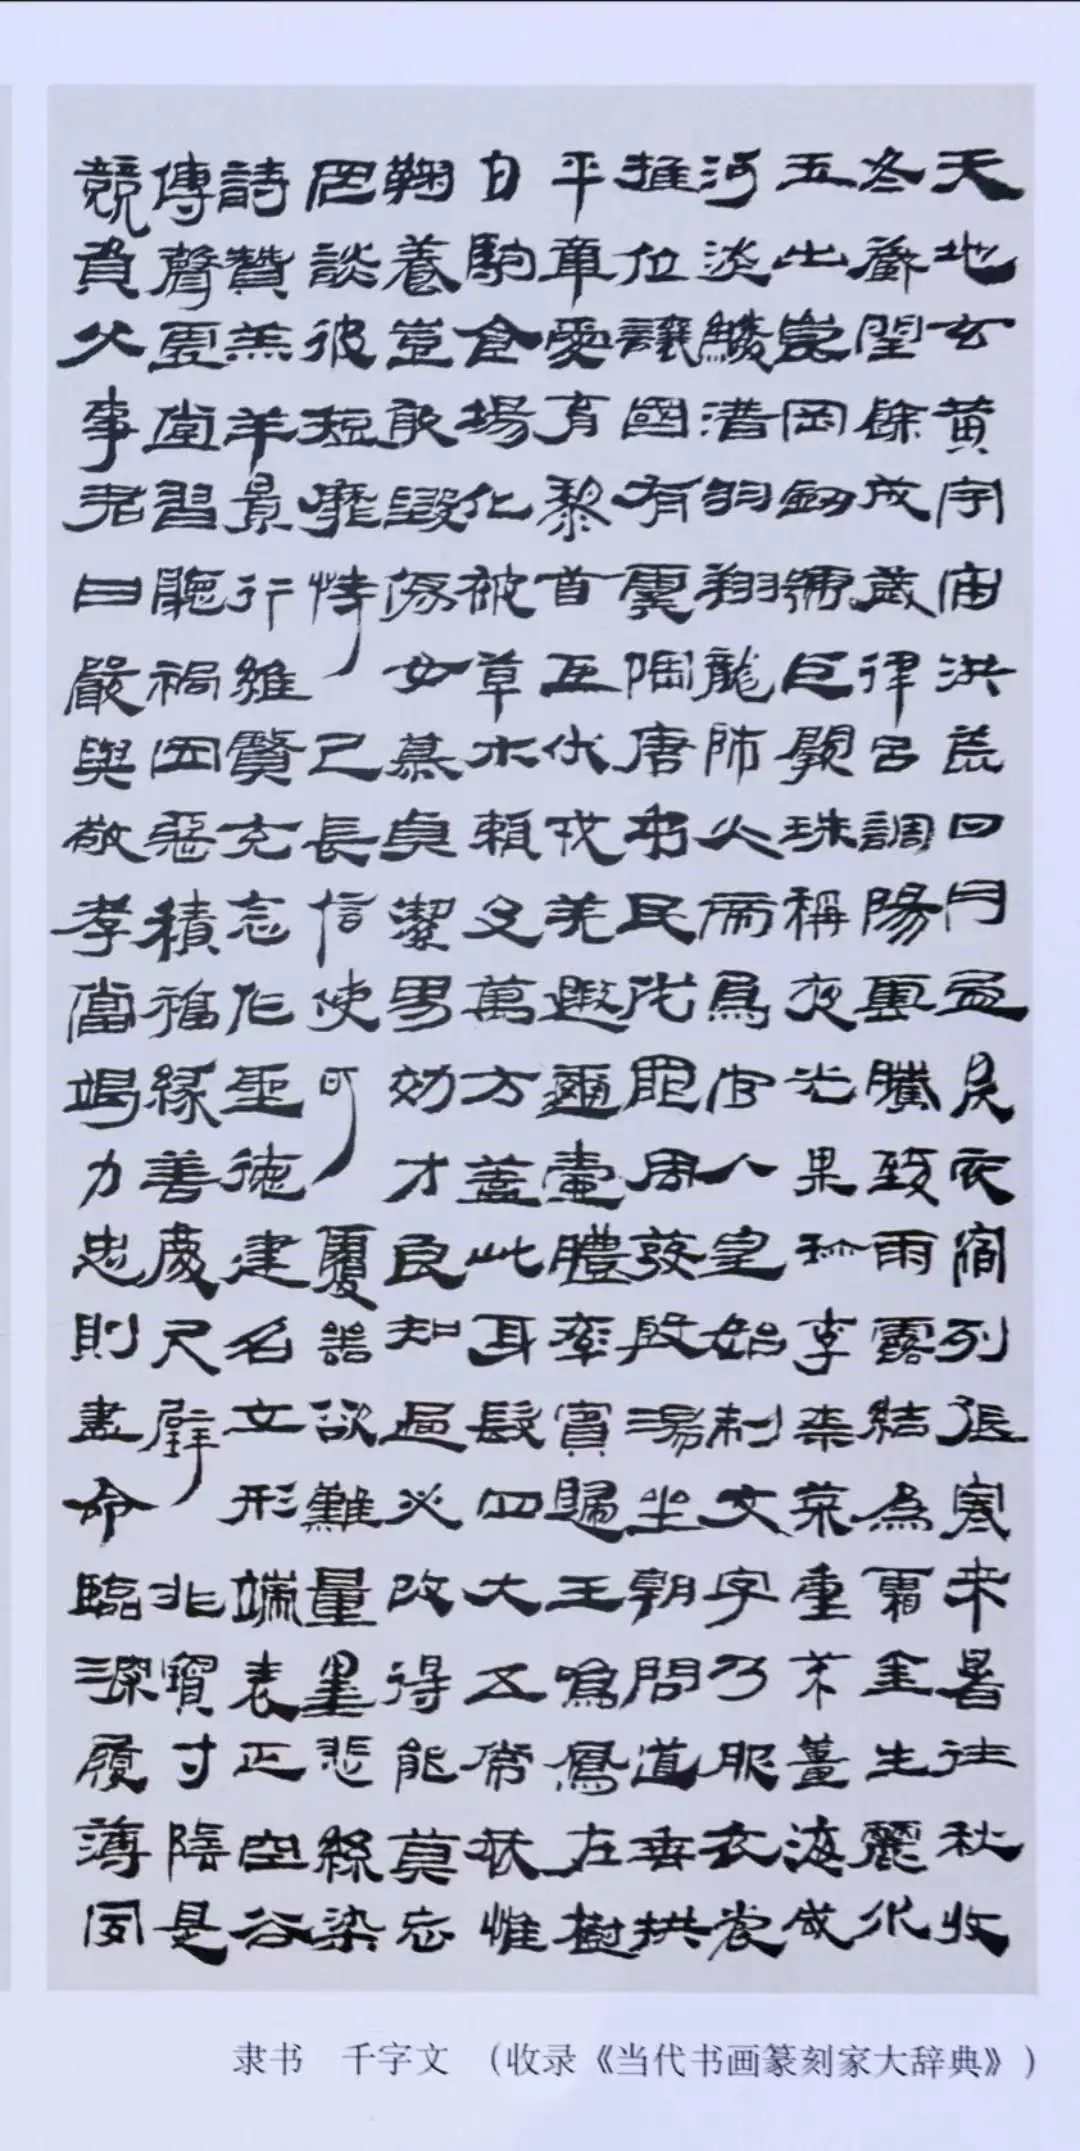 天地玄黄宇宙洪荒日月盈昃辰宿列張寒来暑往秋收
冬藏閏餘成歲律吕調陽雲騰致雨露結為霜金生麗水
玉出崑岡劒號巨闕珠稱夜光果珍李柰菜重芥薑海咸
河淡鱗潛羽翔龍師火帝鳥官人皇始制文字乃服衣裳
推位讓國有虞陶唐弔民伐罪周發殷湯坐朝問道垂拱
平章愛育黎首臣伏戎羌遐邇壹體率賓歸王鳴鳳在樹
白駒食場化被草木賴及萬方蓋此身髮四大五常恭惟
鞠養豈敢毀傷女慕貞潔男効才良知過必改得能莫忘
罔談彼短靡恃己長信使可覆器欲難量墨悲絲染
詩贊羔羊景行維賢克念作聖德建名立形端表正空谷
傳聲虛堂習聽禍因惡積福緣善慶尺璧非寶寸陰是
競資父事君曰嚴與敬孝當竭力忠則盡命臨深履薄夙
隶书 千字文 （收录《当代书画篆刻家大辞典》）